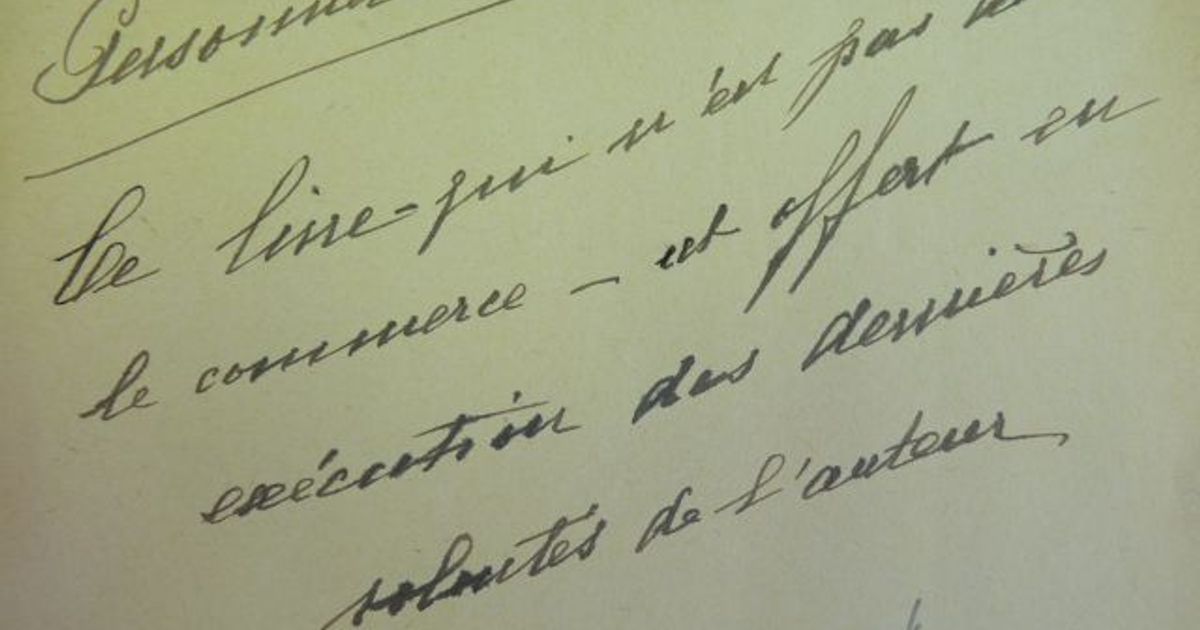 Ce livre - qui n'est pas
le commerce - est offert en
exécution des dernières
volontés de l'auteur